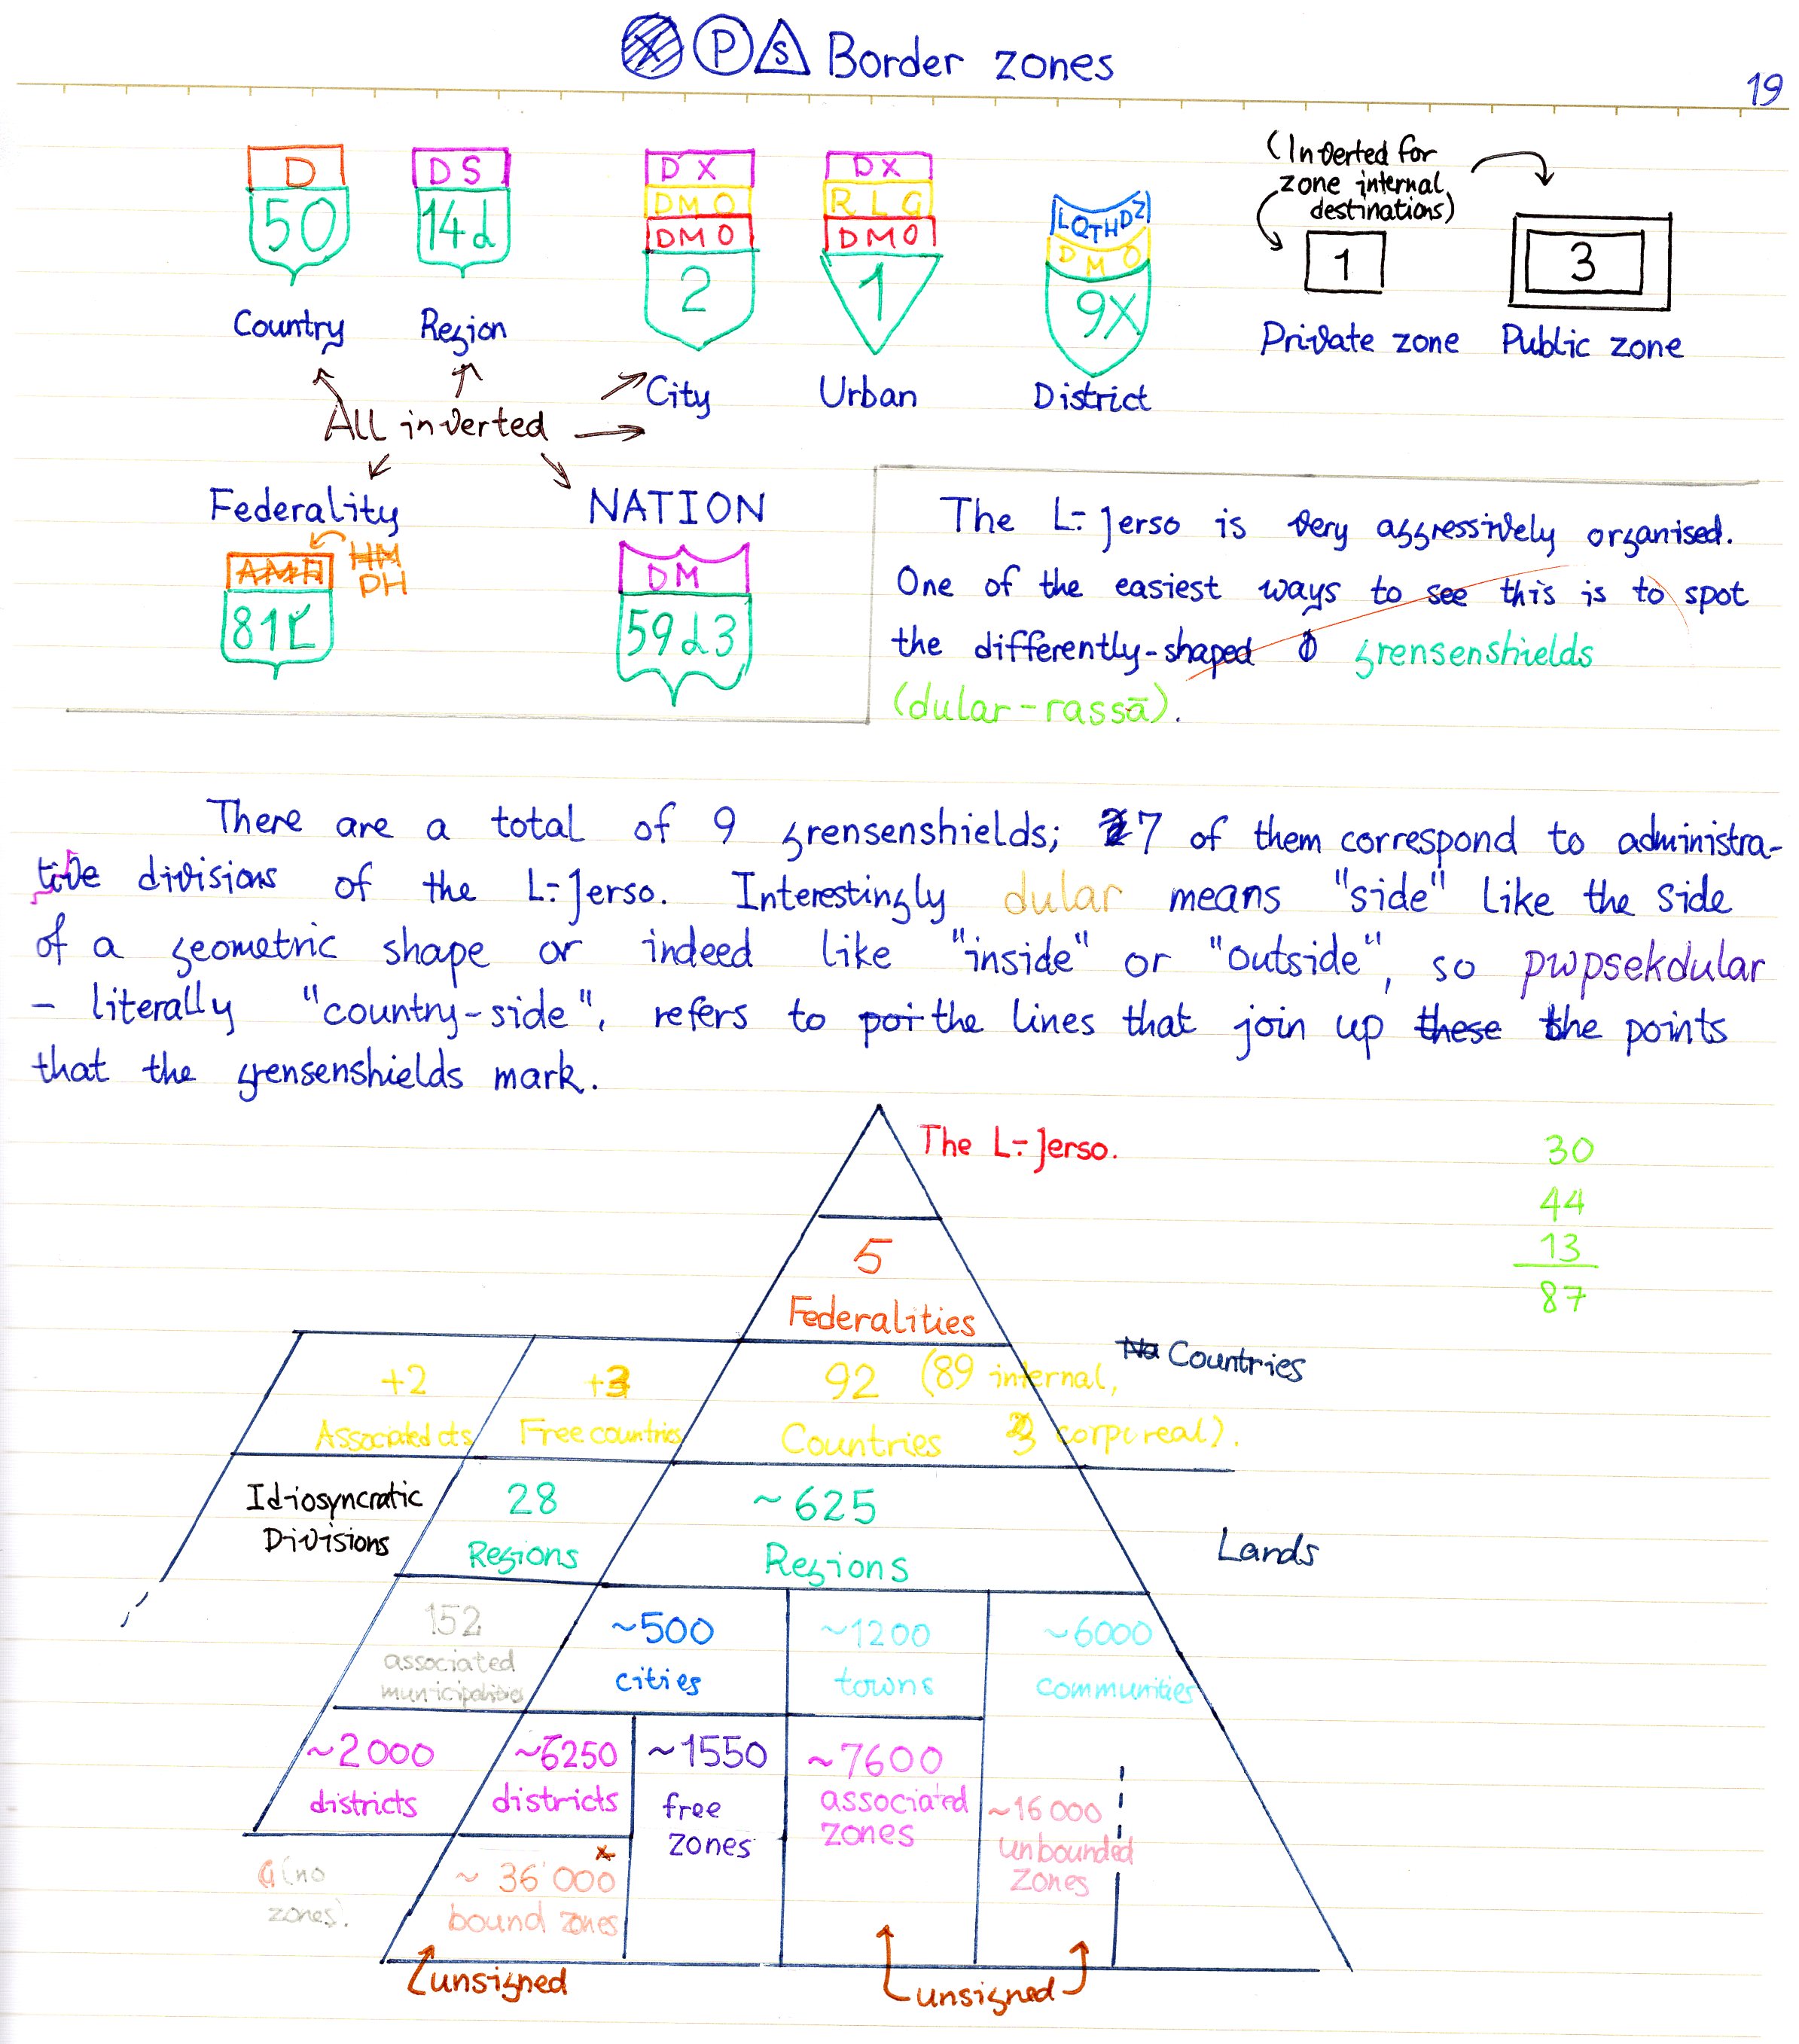 X P S Border zones
19
D
50
Country
DS
14d
Region
DX
DMO
DMO
2
City
DX
RLG
DMO
1
Urban
LQTHDZ
DMO
9X
District
(Inverted for
zone internal
destinations)
1
Private zone
3
Public zone
All inverted
Federality
HM
DH
NATION
DM
59d3
The L-Jerso is very aggressively organised.
One of the easiest ways to see this is to spot
the differently-shaped grensenshields
(dular-rassā).
There are a total of 9 grensenshields; 7 of them correspond to administra-
tive divisions of the L-Jerso. Interestingly dular means "side" like the side
of a geometric shape or indeed like "inside" or "outside", so pwpsekdular
– literally "country-side", refers to the lines that join up these the points
that the grensenshields mark.
The L-Jerso.
30
44
13
87
5
Federalities
+2
Associated cts
+3
Free countries
92 (89 internal,
Countries 3 corporeal).
Countries
Idiosyncratic
Divisions
28
Regions
~625
Regions
Lands
152
associated
municipalities
~500
cities
~1200
towns
~6000
communities
~2000
districts
~6250
districts
~1550
free
zones
~7600
associated
zones
~16000
unbounded
zones
(no
zones).
~36'000
bound zones
unsigned
unsigned